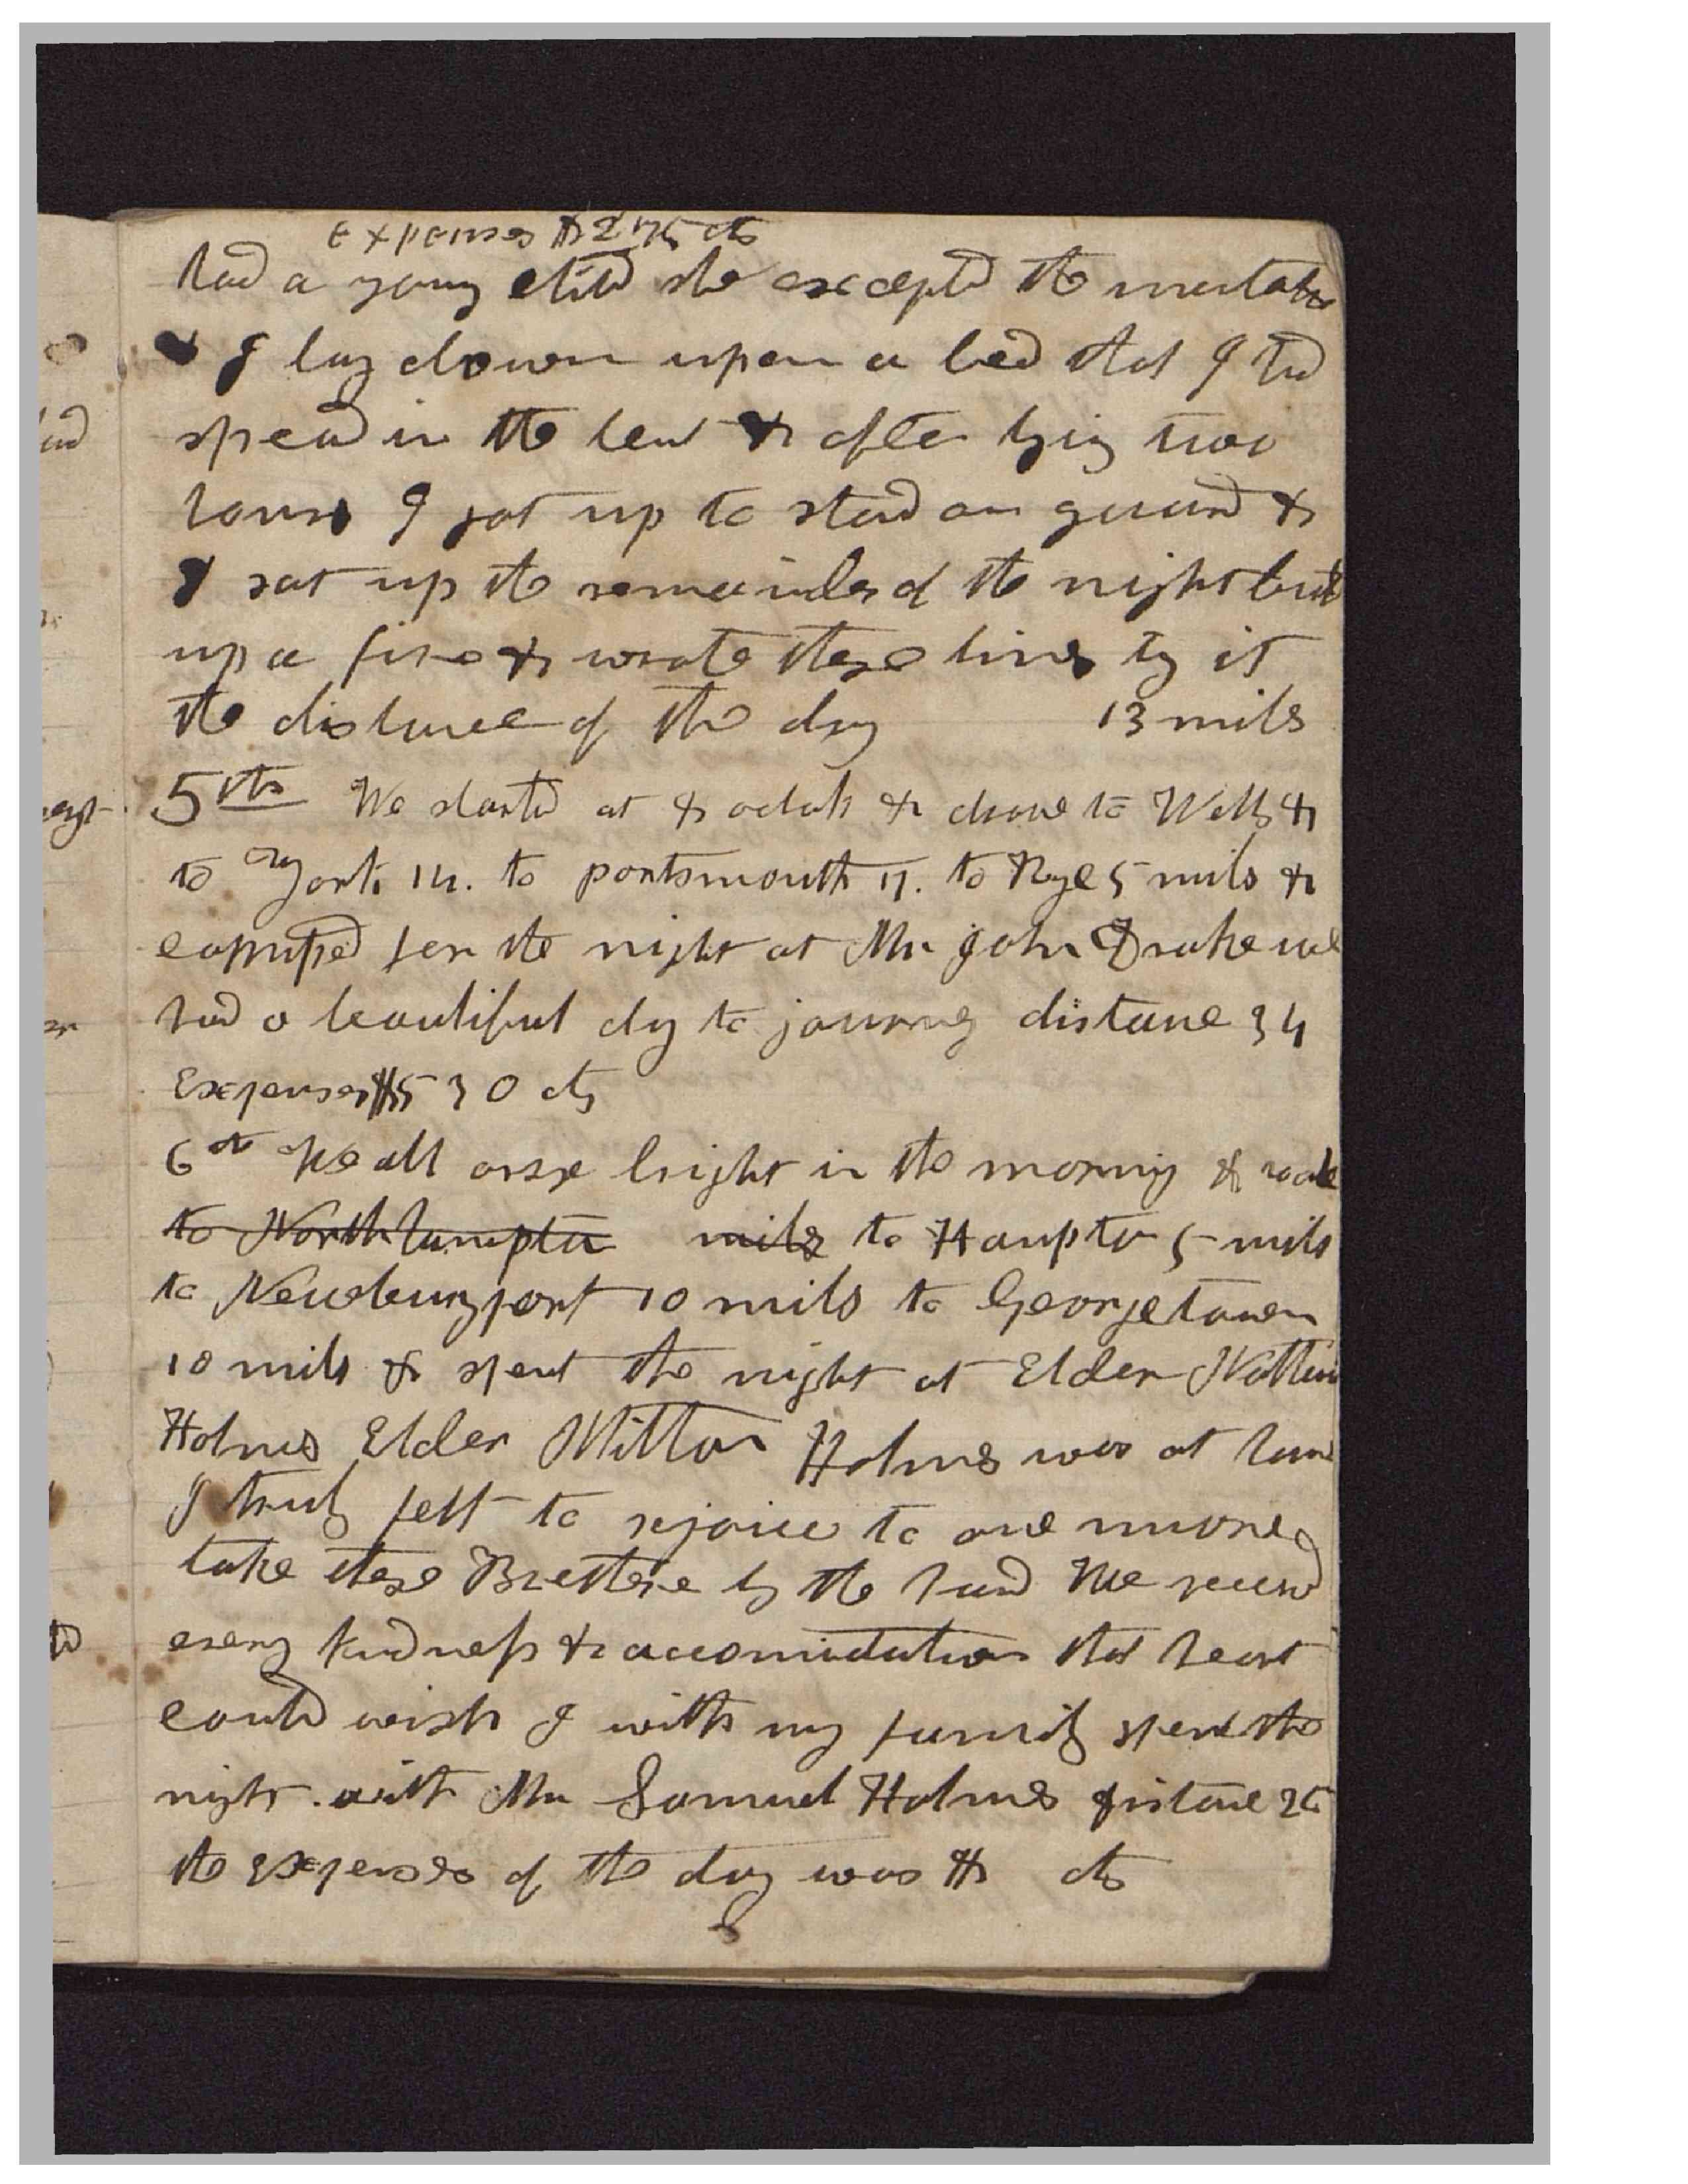 Expenses $2 75 cts
had a young child she excepted the invitation
& I lay down upon a bed that I had
spread in the tent & after lying two
hours I got up to stand on guard &
I sat up the remainder of the night built
up a fire & wrote these lines by it
the distance of the day 13 miles
5th We started at & oclock & drove to Wells &
to York 14. to portsmouth 17. to Rye 5 miles &
campted for the night at Mr John Drake we
had a beautiful day to journey distance 34
Expenses $5 30 cts
6th We all arose bright in the morning & rode
to Northhampton miles to Hampton 5 miles
to Newburyport 10 miles to Georgetown
10 miles & spent the night at Elder Nathan
Holmes Elder Milton Holmes was at home
I truly felt to rejoice to once more
take these Brethren by the hand We received
every kindness & accomidation that heart
could wish I with my family spent the
night with Mr Samuel Holmes distance 25
the expenses of the day was $ cts